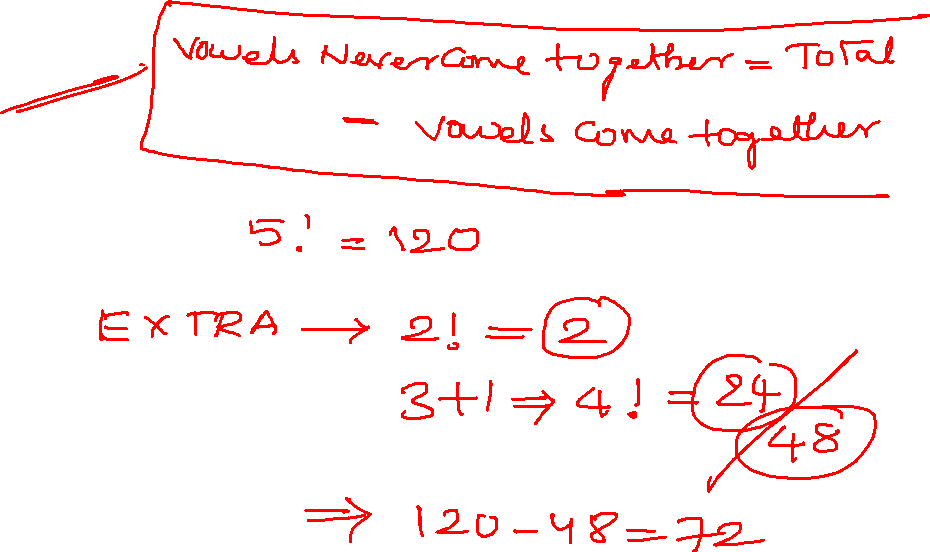 Vowels Never Come together = Total
- Vowels Come together
5! = 120
EXTRA → 2! = 2
3+1 ⇒ 4! = 24
48
⇒ 120-48=72